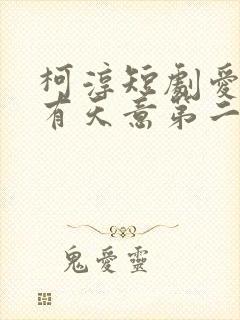 柯淳短劇愛
有天意第二
鬼愛靈